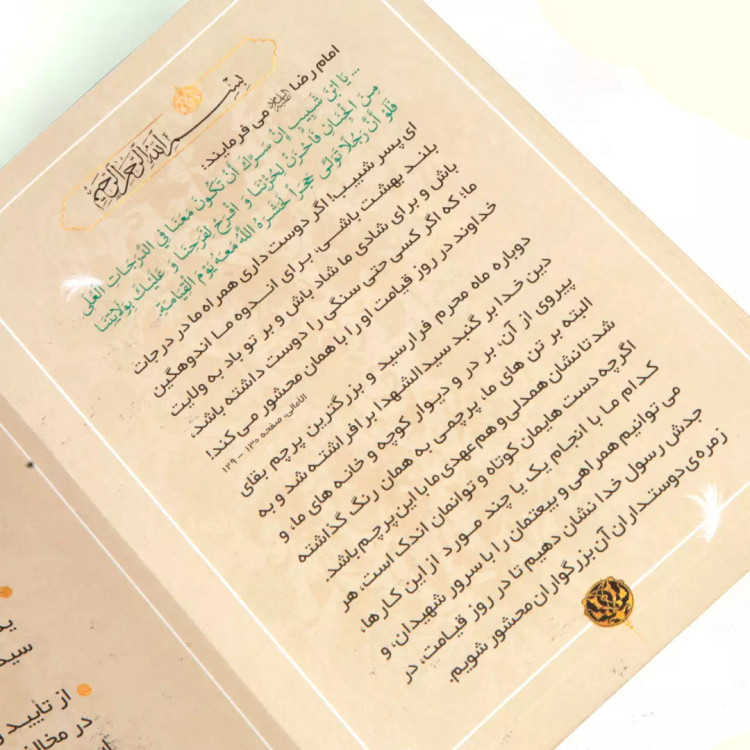 بسم الله الرحمن الرحیم
امام رضا علیه‌السلام می فرمایند:
... یَا ابْنَ شَبِیبٍ إِنْ سَرَّكَ أَنْ تَكُونَ مَعَنَا فِی الدَّرَجَاتِ الْعُلَى
مِنَ الْجِنَانِ فَاحْزَنْ لِحُزْنِنَا وَ افْرَحْ لِفَرَحِنَا وَ عَلَیْكَ بِوَلَایَتِنَا
فَلَوْ أَنَّ رَجُلًا تَوَلَّى حَجَراً لَحَشَرَهُ اللَّهُ مَعَهُ یَوْمَ الْقِیَامَةِ.
ای پسر شبیب! اگر دوست داری همراه ما در درجات
بلند بهشت باشی، برای اندوه ما اندوهگین
باش و برای شادی ما شاد باش و بر تو باد به ولایت
ما؛ که اگر کسی حتی سنگی را دوست داشته باشد،
خداوند در روز قیامت او را با همان محشور می‌کند!
الأمالی، صفحه ۱۳۰ - ۱۲۹
دوباره ماه محرم فرا رسید و بزرگترین پرچم بقای
دین خدا بر گنبد سیدالشهدا بر افراشته شد و به
پیروی از آن، بر در و دیوار کوچه و خانه های ما، و
البته بر تن های ما، پرچمی به همان رنگ گذاشته
شد تا نشان همدلی و هم عهدی ما با این پرچم باشد.
اگرچه دست هایمان کوتاه و توانمان اندک است، هر
کدام ما با انجام یک یا چند مورد از این کارها،
می توانیم همراهی و بیعتمان را با سرور شهیدان، و
جدش رسول خدا نشان دهیم تا در روز قیامت، در
زمره‌ی دوستداران آن بزرگواران محشور شویم.
از تأیید
در